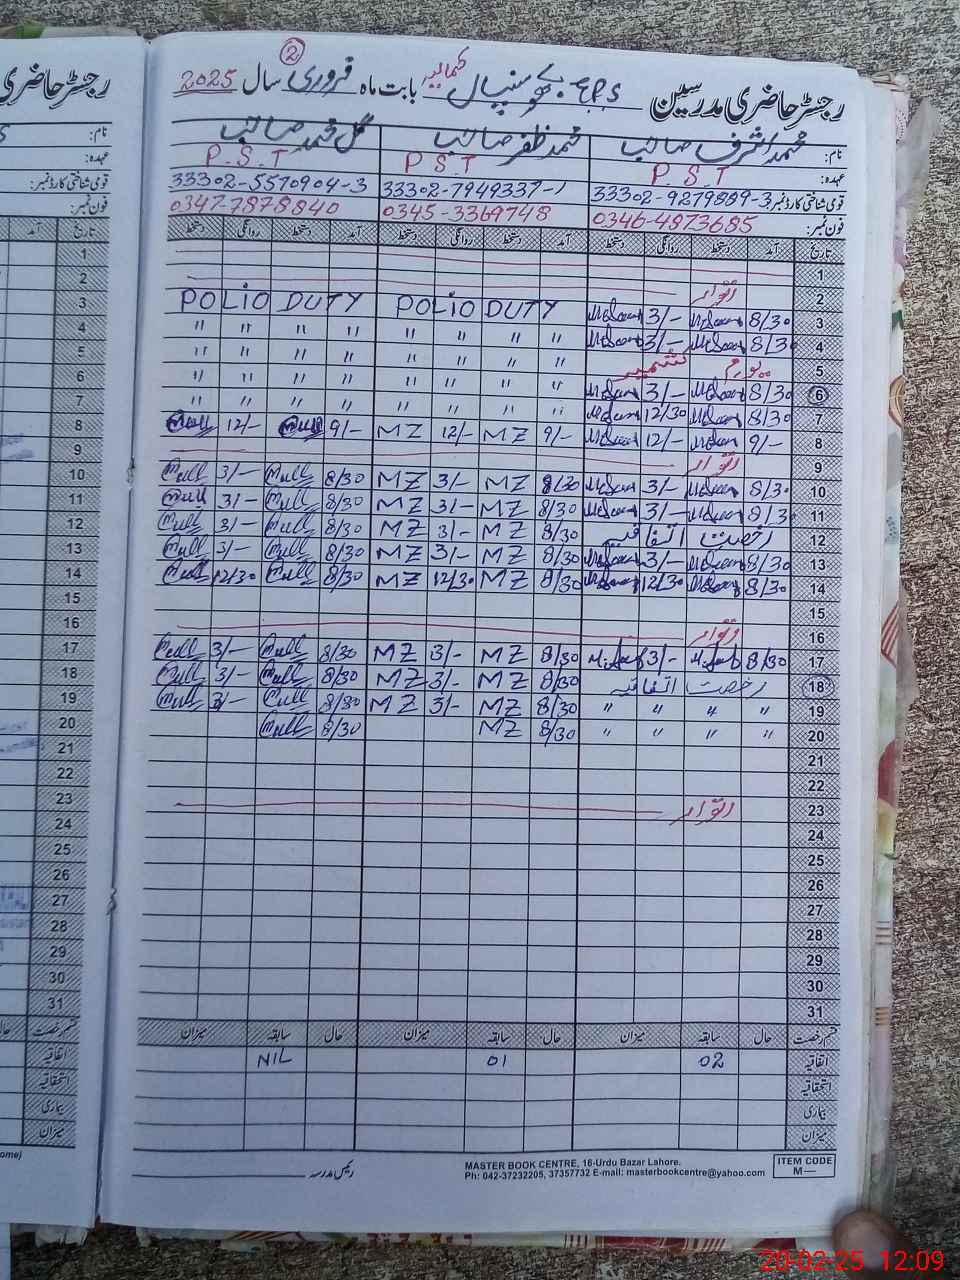 رجسٹر حاضری مدرسین GPS بھوسنپال کمالیہ بابت ماہ فروری ② سال 2025
نام: محمد اشرف صاحب محمد ظفر صاحب گل محمد صاحب
عہدہ: P.S.T P S T P.S.T
قومی شناختی کارڈ نمبر: 33302-9279889-3 33302-7949337-1 33302-5570904-3
فون نمبر: 0346-4873685 0345-3369748 0347-7878840
تاریخ آمد دستخط روانگی دستخط آمد دستخط روانگی دستخط آمد دستخط روانگی دستخط
1
2 اتوار
3 8/30 3/- POLIO DUTY POLIO DUTY
4 8/30 3/- " " " " " " " "
5 یوم کشمیر " " " " " " " "
6 8/30 3/- " " " " " " " "
7 8/30 12/30 " " " " " " " "
8 9/- 12/- 9/- MZ 12/- MZ 9/- 12/-
9 اتوار
10 8/30 3/- 8/30 MZ 3/- MZ 8/30 3/-
11 8/30 3/- 8/30 MZ 3/- MZ 8/30 3/-
12 رخصت اتفاقیہ 8/30 MZ 3/- MZ 8/30 3/-
13 8/30 3/- 8/30 MZ 3/- MZ 8/30 3/-
14 8/30 12/30 8/30 MZ 12/30 MZ 8/30 12/30
15
16 اتوار
17 8/30 3/- 8/30 MZ 3/- MZ 8/30 3/-
18 رخصت اتفاقیہ 8/30 MZ 3/- MZ 8/30 3/-
19 " " " " 8/30 MZ 3/- MZ 8/30 3/-
20 " " " " 8/30 MZ 8/30
21
22
23 اتوار
24
25
26
27
28
29
30
31
قسم رخصت حال سابقہ میزان حال سابقہ میزان حال سابقہ میزان
اتفاقیہ 02 01 NIL
استحقاقیہ
بیماری
میزان
رئیس مدرسہ
MASTER BOOK CENTRE, 16-Urdu Bazar Lahore.
Ph: 042-37232205, 37357732 E-mail: masterbookcentre@yahoo.com
ITEM CODE
M—
20-02-25 12:09